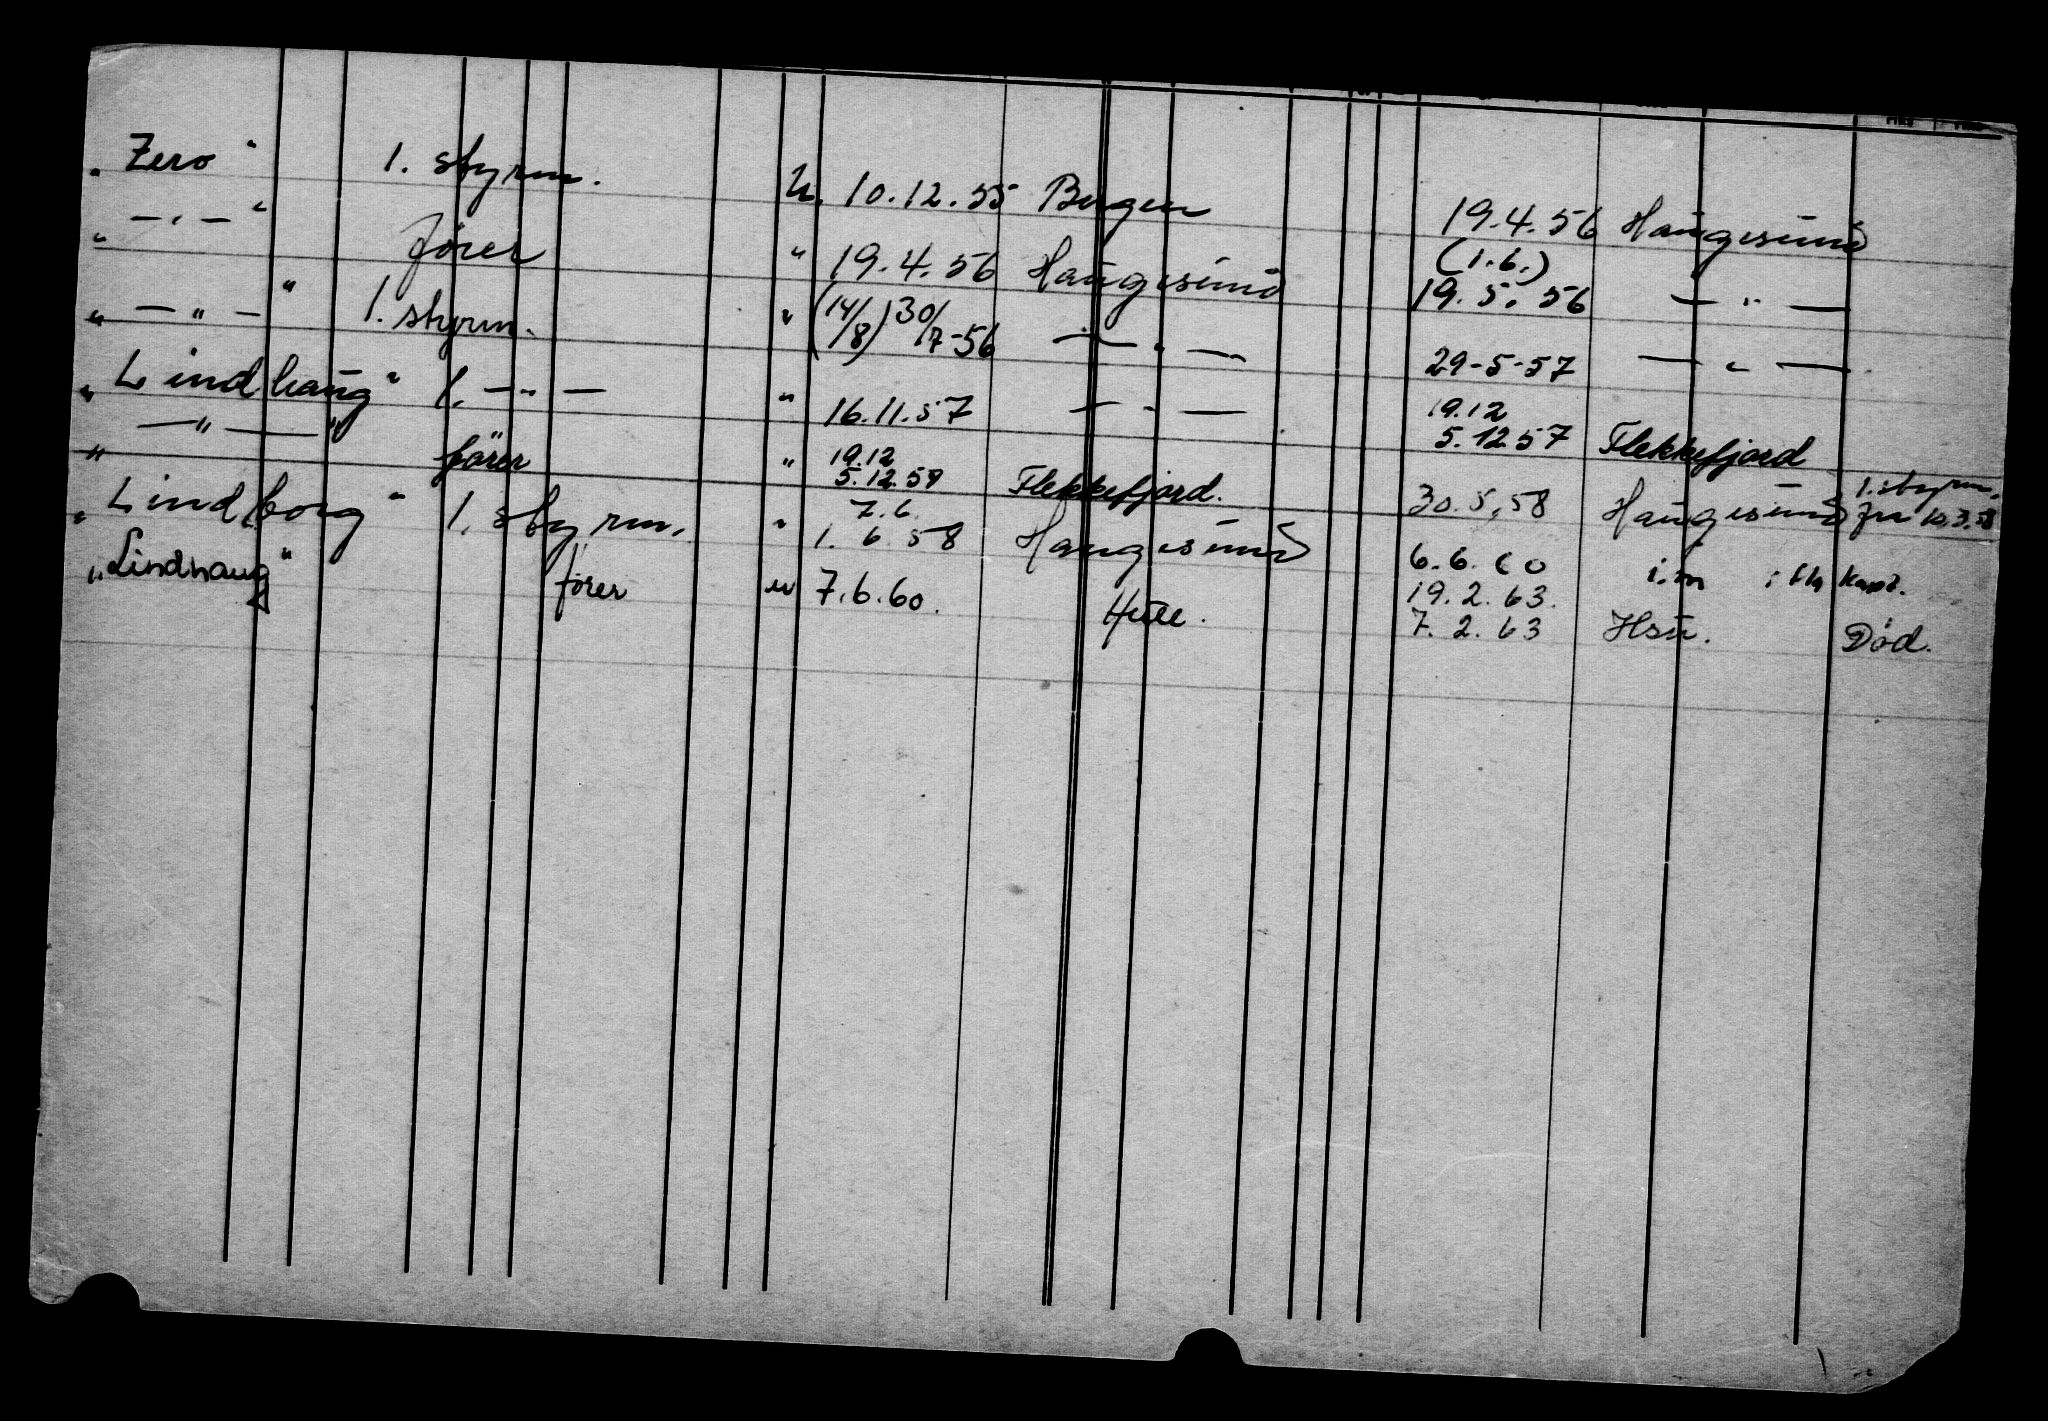 „Zero" 1. styrm. U. 10.12.55 Bergen 19.4.56 Haugesund
„—„—" förer " 19.4.56 Haugesund (1.6.) 19.5.56 —"—
„—"—" 1. styrm. " (14/8) 30/7-56 —"— 29-5-57 —"—
„Lindhaug" 1. —"— " 16.11.57 —"— 19.12 5.12 57 Flekkefjord
„—"—" förer " 19.12 5.12.57 Flekkefjord. 30.5.58 Haugesund 1. styrm. fra 10.3.58
„Lindborg" 1. styrm. " 7.6. 1.6.58 Haugesund 6.6.60 i.m
„Lindhaug" fører " 7.6.60. Hull. 19.2.63. 7.2.63 Hsu. Død.